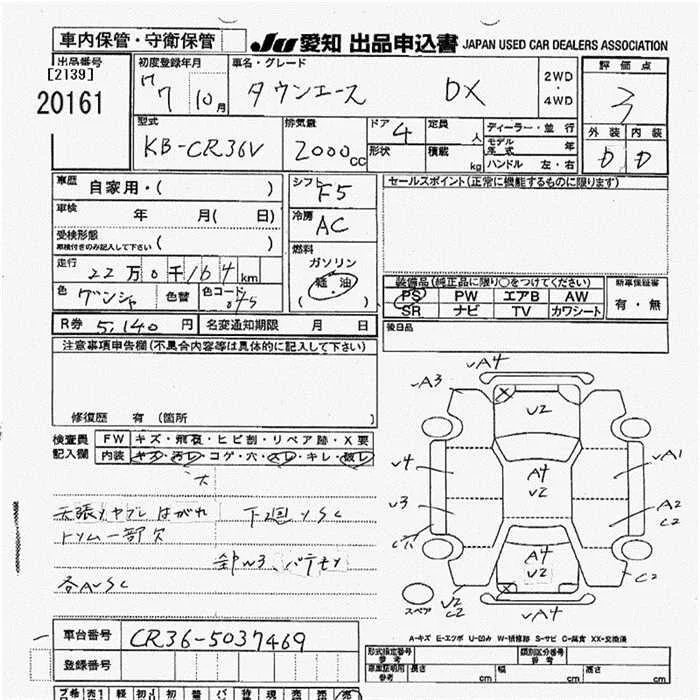 車内保管・守衛保管
Ju 愛知 出品申込書 JAPAN USED CAR DEALERS ASSOCIATION
出品番号
[2139]
20161
初度登録年月
17 7 10月
車名・グレード
タウンエース DX
2WD
・
4WD
評価点
3
外装 内装
D D
型式
KB-CR36V
排気量
2000cc
ドア 4
形状
定員 人
積載 kg
ディーラー・並行
モデル年式 年
ハンドル 左・右
車歴 自家用・( )
車検 年 月( 日)
受検形態
車検付きのみ記入して下さい ( )
走行 22万0千164km
色 グンジャ 色替 色コード 045
R券 5,140円 名変通知期限 月 日
シフト F5
冷房 AC
燃料
ガソリン
軽油
( )
セールスポイント(正常に機能するものに限ります)
装備品(純正品に限り○をつけてください)
PS PW エアB AW
SR ナビ TV カワシート
新車保証書
有・無
後日品
注意事項申告欄(不具合内容等は具体的に記入して下さい)
修復歴 有 (箇所 )
検査員記入欄
FW キズ・飛石・ヒビ割・リペア跡・X要
内装 キズ・汚レ・コゲ・穴・スレ・キレ・破レ
大
天張りヤブレはがれ 下廻りSC
トリム一部欠
各A~SC
A4
A3
U2
A4
U2
U4
U3
A1
A2
C2
C穴
A4
U2
C2
U2
C2
A4
スペア
A-キズ E-エクボ U-凹み W-補修跡 S-サビ C-腐食 XX-交換済
車台番号 CR36-5037469
登録番号
形式指定番号 参考
類別区分番号 参考
車庫証明用 参考 長さ cm 幅 cm 高さ cm